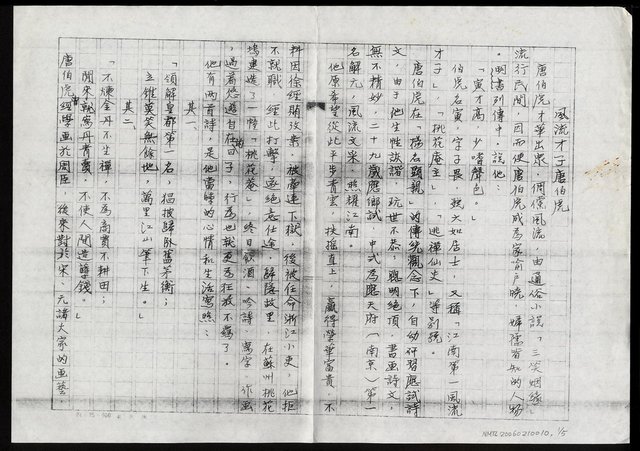 風流才子唐伯虎
唐伯虎才華出眾,倜儻風流,由通俗小說「三笑姻緣」
流行民間,因而使唐伯虎成為家喻戶曉,婦孺皆知的人物
。明書列傳中說他:
「寅才高,少嗜聲色。」
伯虎名寅,字子畏,號六如居士,又稱「江南第一風流
才子」,「桃花庵主」,「逃禪仙吏」等別號。
唐伯虎在「揚名顯親」的傳統觀念下,自幼研習應試詩
文,由于他生性詼諧,玩世不恭,聰明絕頂,書畫詩文,
無不精妙,二十九歲應鄉試,中式為應天府(南京)第一
名解元,風流文采,照耀江南。
他原希望從此平步青雲,扶搖直上,贏得榮華富貴,不
料因徐經賄攷案,被牽連下獄,後被任命浙江小吏,他拒
不就職,經此打擊,遂絕意仕途,歸隱故里,在蘇州桃花
塢建造一幢「桃花菴」,終日飲酒、吟詩、寫字、作画
,過着悠遊自在的日子,行為也就更為狂放不羈了。
他有兩首詩,是他當時的心情和生活寫照:
其一、
「領解皇都第一名,猖披歸臥舊茅衡;
立錐莫笑無餘地,萬里江山筆下生。」
其二、
「不煉金丹不坐禪,不為商賈不耕田;
閒來就寫丹青賣,不使人間造孽錢。」
唐伯虎曾學画於周臣,後來對於宋、元諸大家的画藝,
NMTL20060210010, 1/5